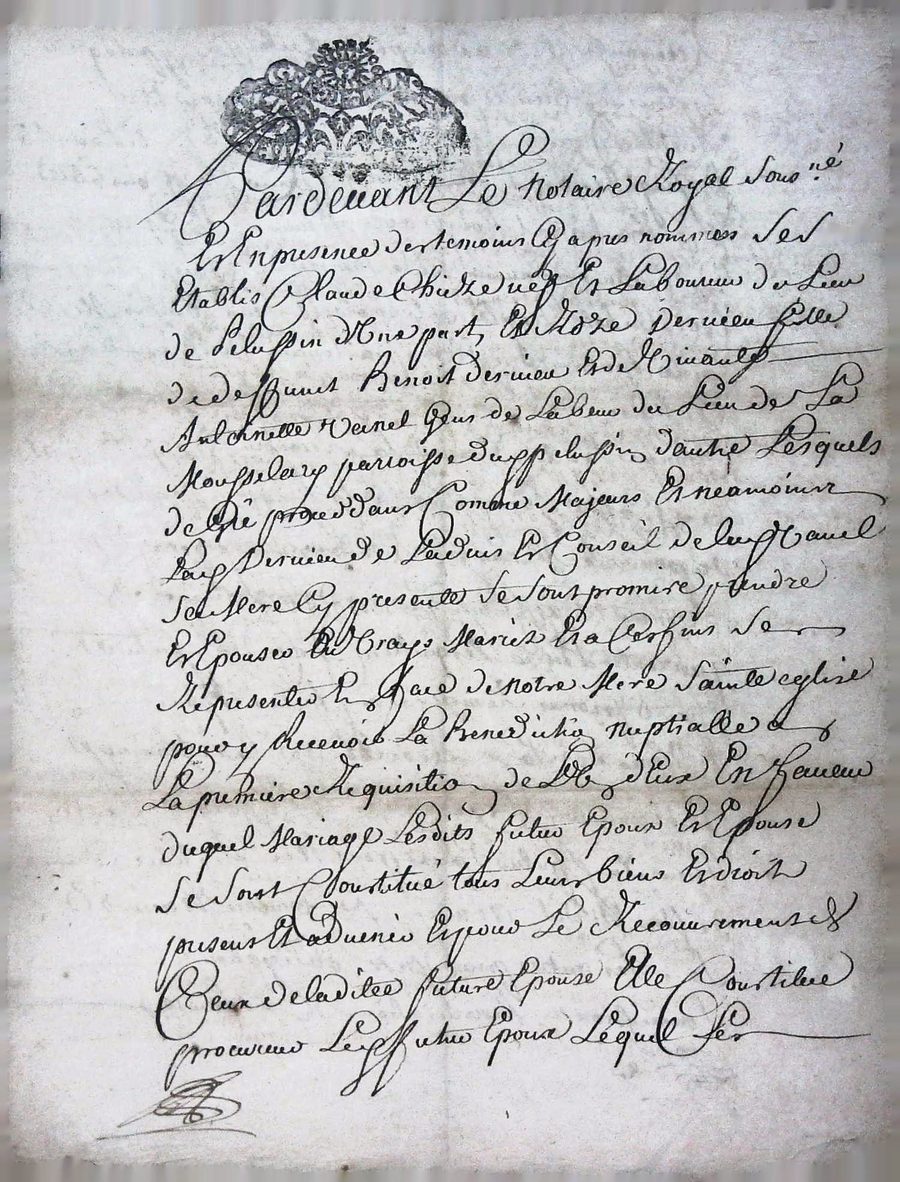 Pardevant Le Notaire Royal Sous.né
Et En presence des temoins Cy apres nommes se s
Etablis Claude Chieze Et Laboureur du Lieu
de Pelussin d'Une part, Et Roze Dervieu fille
de deffunct Benoit Dervieu Et de
Antoinette Vanel Gens de Labeur du Lieu de La
paroisse dud pelussin d'autre Lesquels
de Gré procedans Comme Majeurs Et neamoins
Lad Dervieu de L'advis Et Conseil de lad Vanel
Sa Mere Cy presente se sont promis prendre
Et Epouser En Vrays Mariés Et a Ces fins se
Representer En face de notre Mere Sainte eglise
pour y Recevoir La Benediction nuptialle a
La premiere Requisition de L'Un d'Eux En faveur
duquel Mariage Lesdits futur Epoux Et Epouse
Se sont Constitué tous Leurs biens Et droits
presens Et advenir Et pour Le Recouvrement de
Ceux de la ditte future Epouse Elle Constitue
procureur Led futur Epoux Lequel